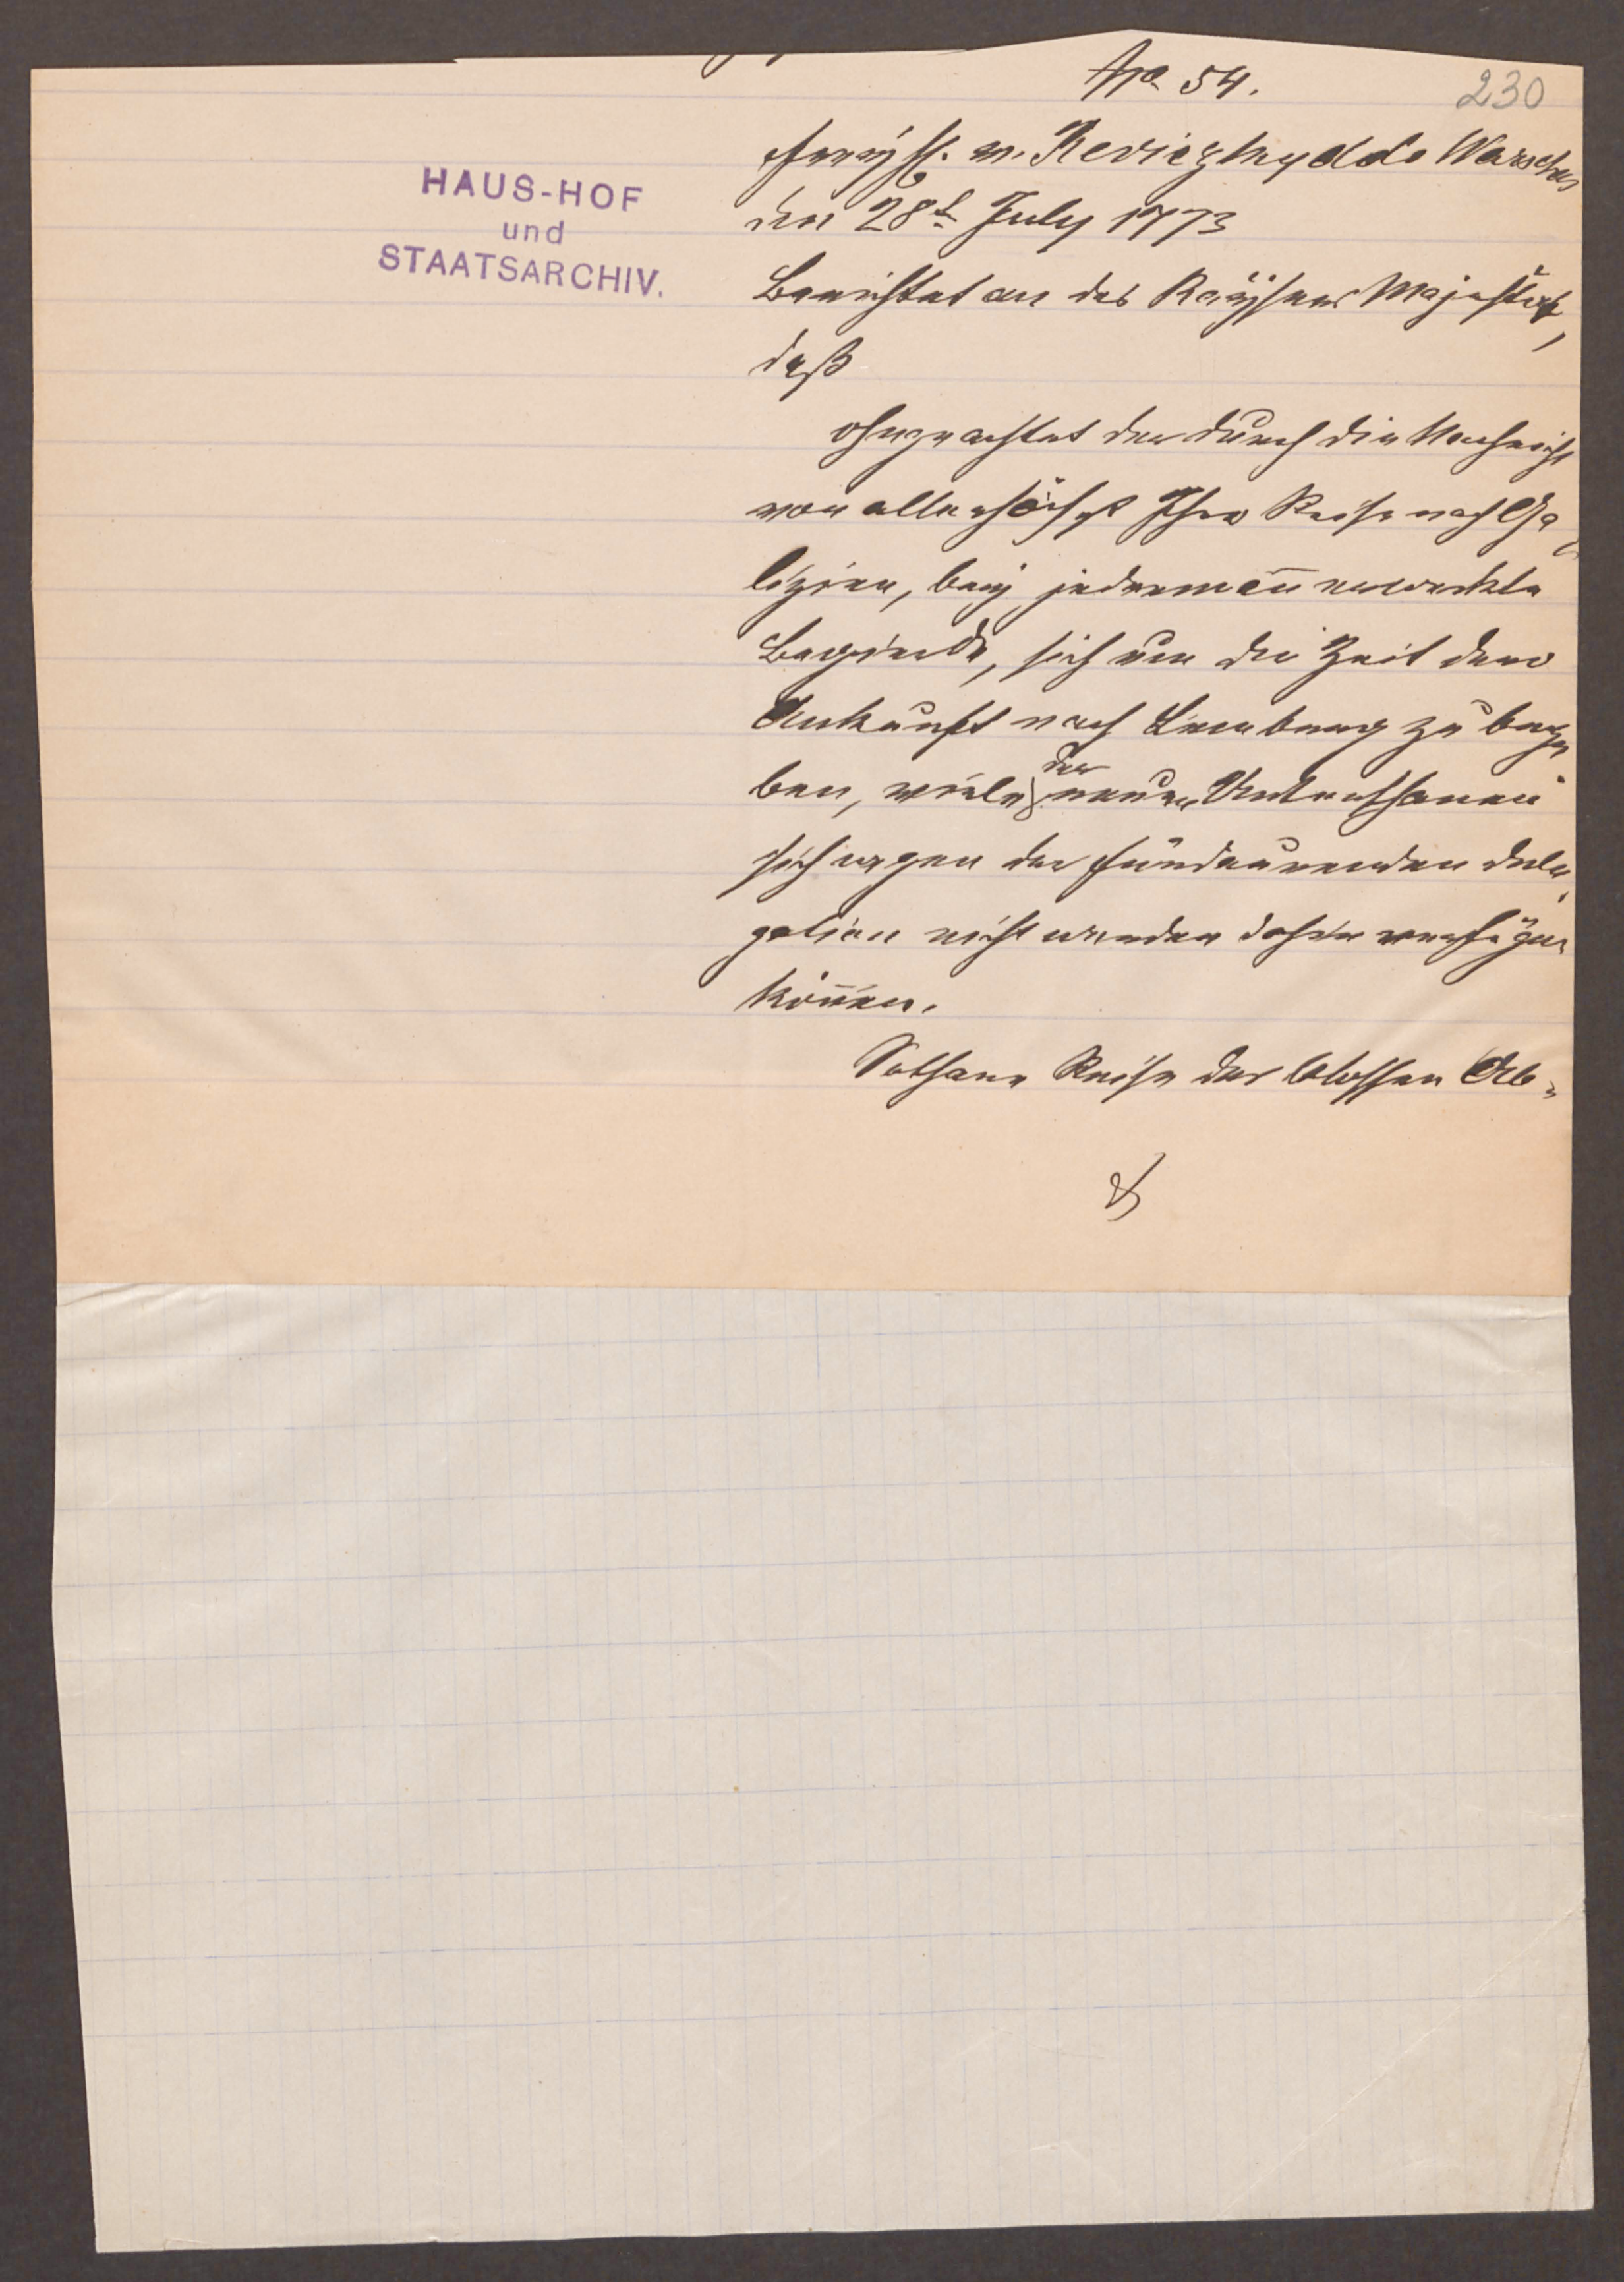 No 54.
230
HAUS-HOF
und
STAATSARCHIV.
Freyh. v. Reviczky ddo Warschau
den 28t July 1773
Berichtet an des Kaÿsers Majestät,
daß
ohngeachtet der durch die Nachricht
von allerhöchst Ihro Reise nach Ga¬
lizien, beÿ jedermañ erweckten
Begierde, sich um die Zeit dero
Ankunft nach Lemberg zu bege
ben, viele der neuen Unterthanen
sich wegen der fürdaurenden dele¬
gation nicht werden dahin verfügen
köñen.
Sothane Reise der blossen Ab¬